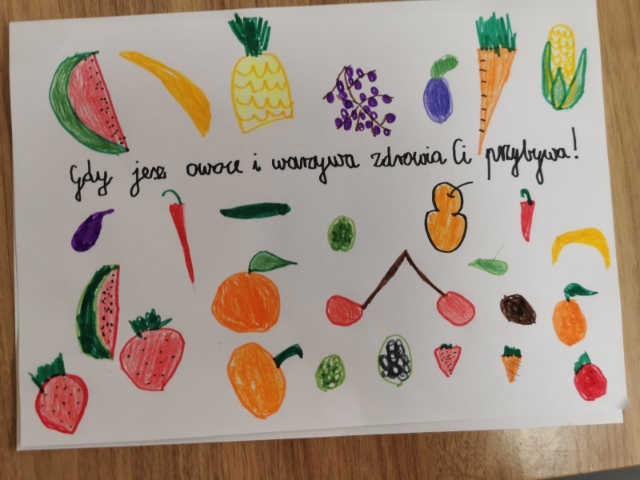 Gdy jesz owoce i warzywa zdrowia Ci przybywa!